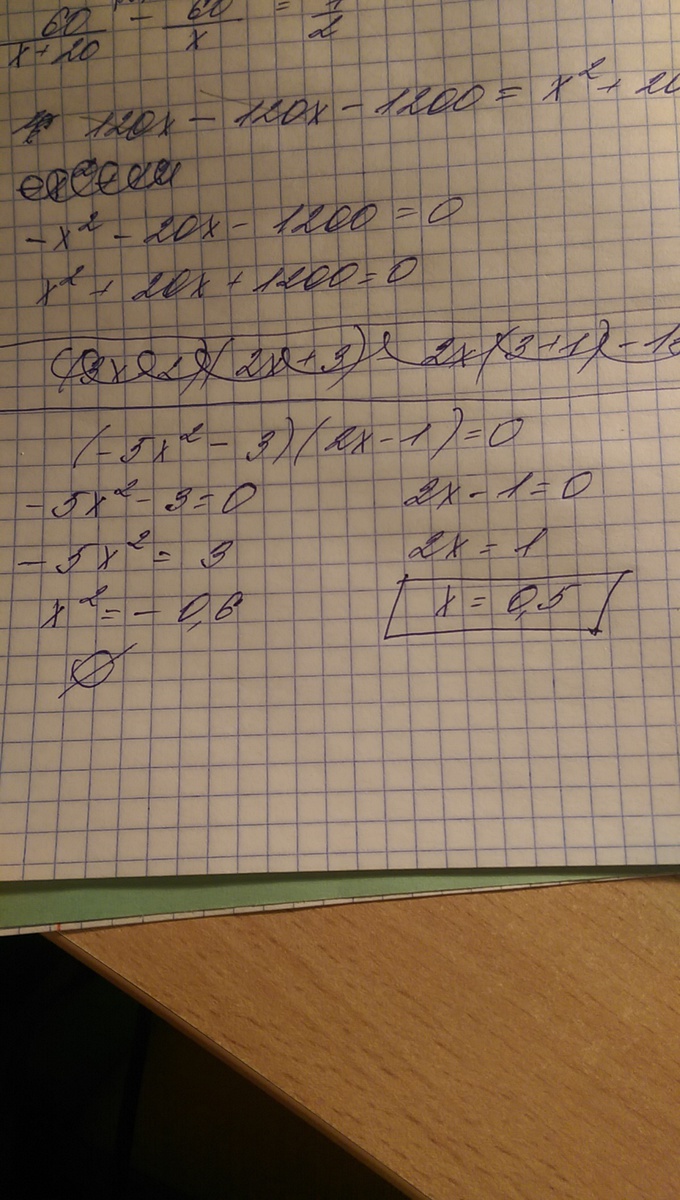 60/(x+20) - 60/x = 1/2
120x - 120x - 1200 = x² + 20
-x² - 20x - 1200 = 0
x² + 20x + 1200 = 0
(2x+3) 2x(3+1) - 1
(-5x² - 3)(2x - 1) = 0
-5x² - 3 = 0 2x - 1 = 0
-5x² = 3 2x = 1
x² = - 0,6 x = 0,5
∅